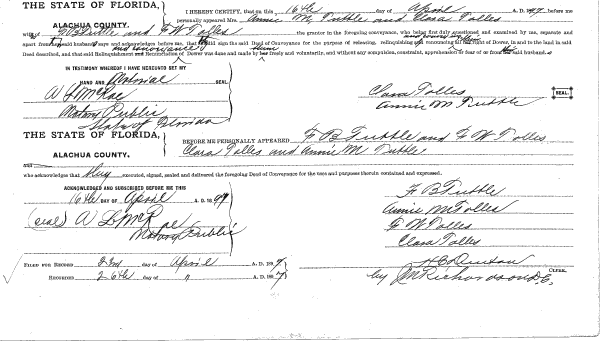 THE STATE OF FLORIDA,
ALACHUA COUNTY.
I HEREBY CERTIFY, that on this 16th day of April A. D. 1897, before me
personally appeared Mrs. Annie M. Tubble and Clara Tolles
wife of F B Tubble and F W Tolles the grantor in the foregoing conveyance, who being first duly questioned and examined by us, separate and
apart from said husband says and acknowledges before me, that sign the said Deed of Conveyance for the purpose of releasing, relinquishing and renouncing all right of Dower, in and to the land in said
Deed described, and that said Relinquishment and Renunciation of Dower was done and made by freely and voluntarily, and without any compulsion, constraint, apprehension or fear of or from said husband.
IN TESTIMONY WHEREOF I HAVE HEREUNTO SET MY
HAND AND Notorial SEAL.
A L McRae
Notary Public
State of Florida
Clara Tolles
Annie M Tubble
SEAL.
THE STATE OF FLORIDA,
ALACHUA COUNTY.
BEFORE ME PERSONALLY APPEARED F B Tubble and F W Tolles
Clara Tolles and Annie M Tubble
and
who acknowledges that they executed, signed, sealed and delivered the foregoing Deed of Conveyance for the uses and purposes therein contained and expressed.
ACKNOWLEDGED AND SUBSCRIBED BEFORE ME THIS
16th DAY OF April A. D. 1897
(seal) A L McRae
Notary Public
F B Tubble
Annie M Tolles
F W Tolles
Clara Tolles
FILED FOR RECORD 23rd day of April A. D. 1897.
RECORDED 26th day of " A. D. 1897.
H C Denton CLERK.
by J M Richardson D.C.